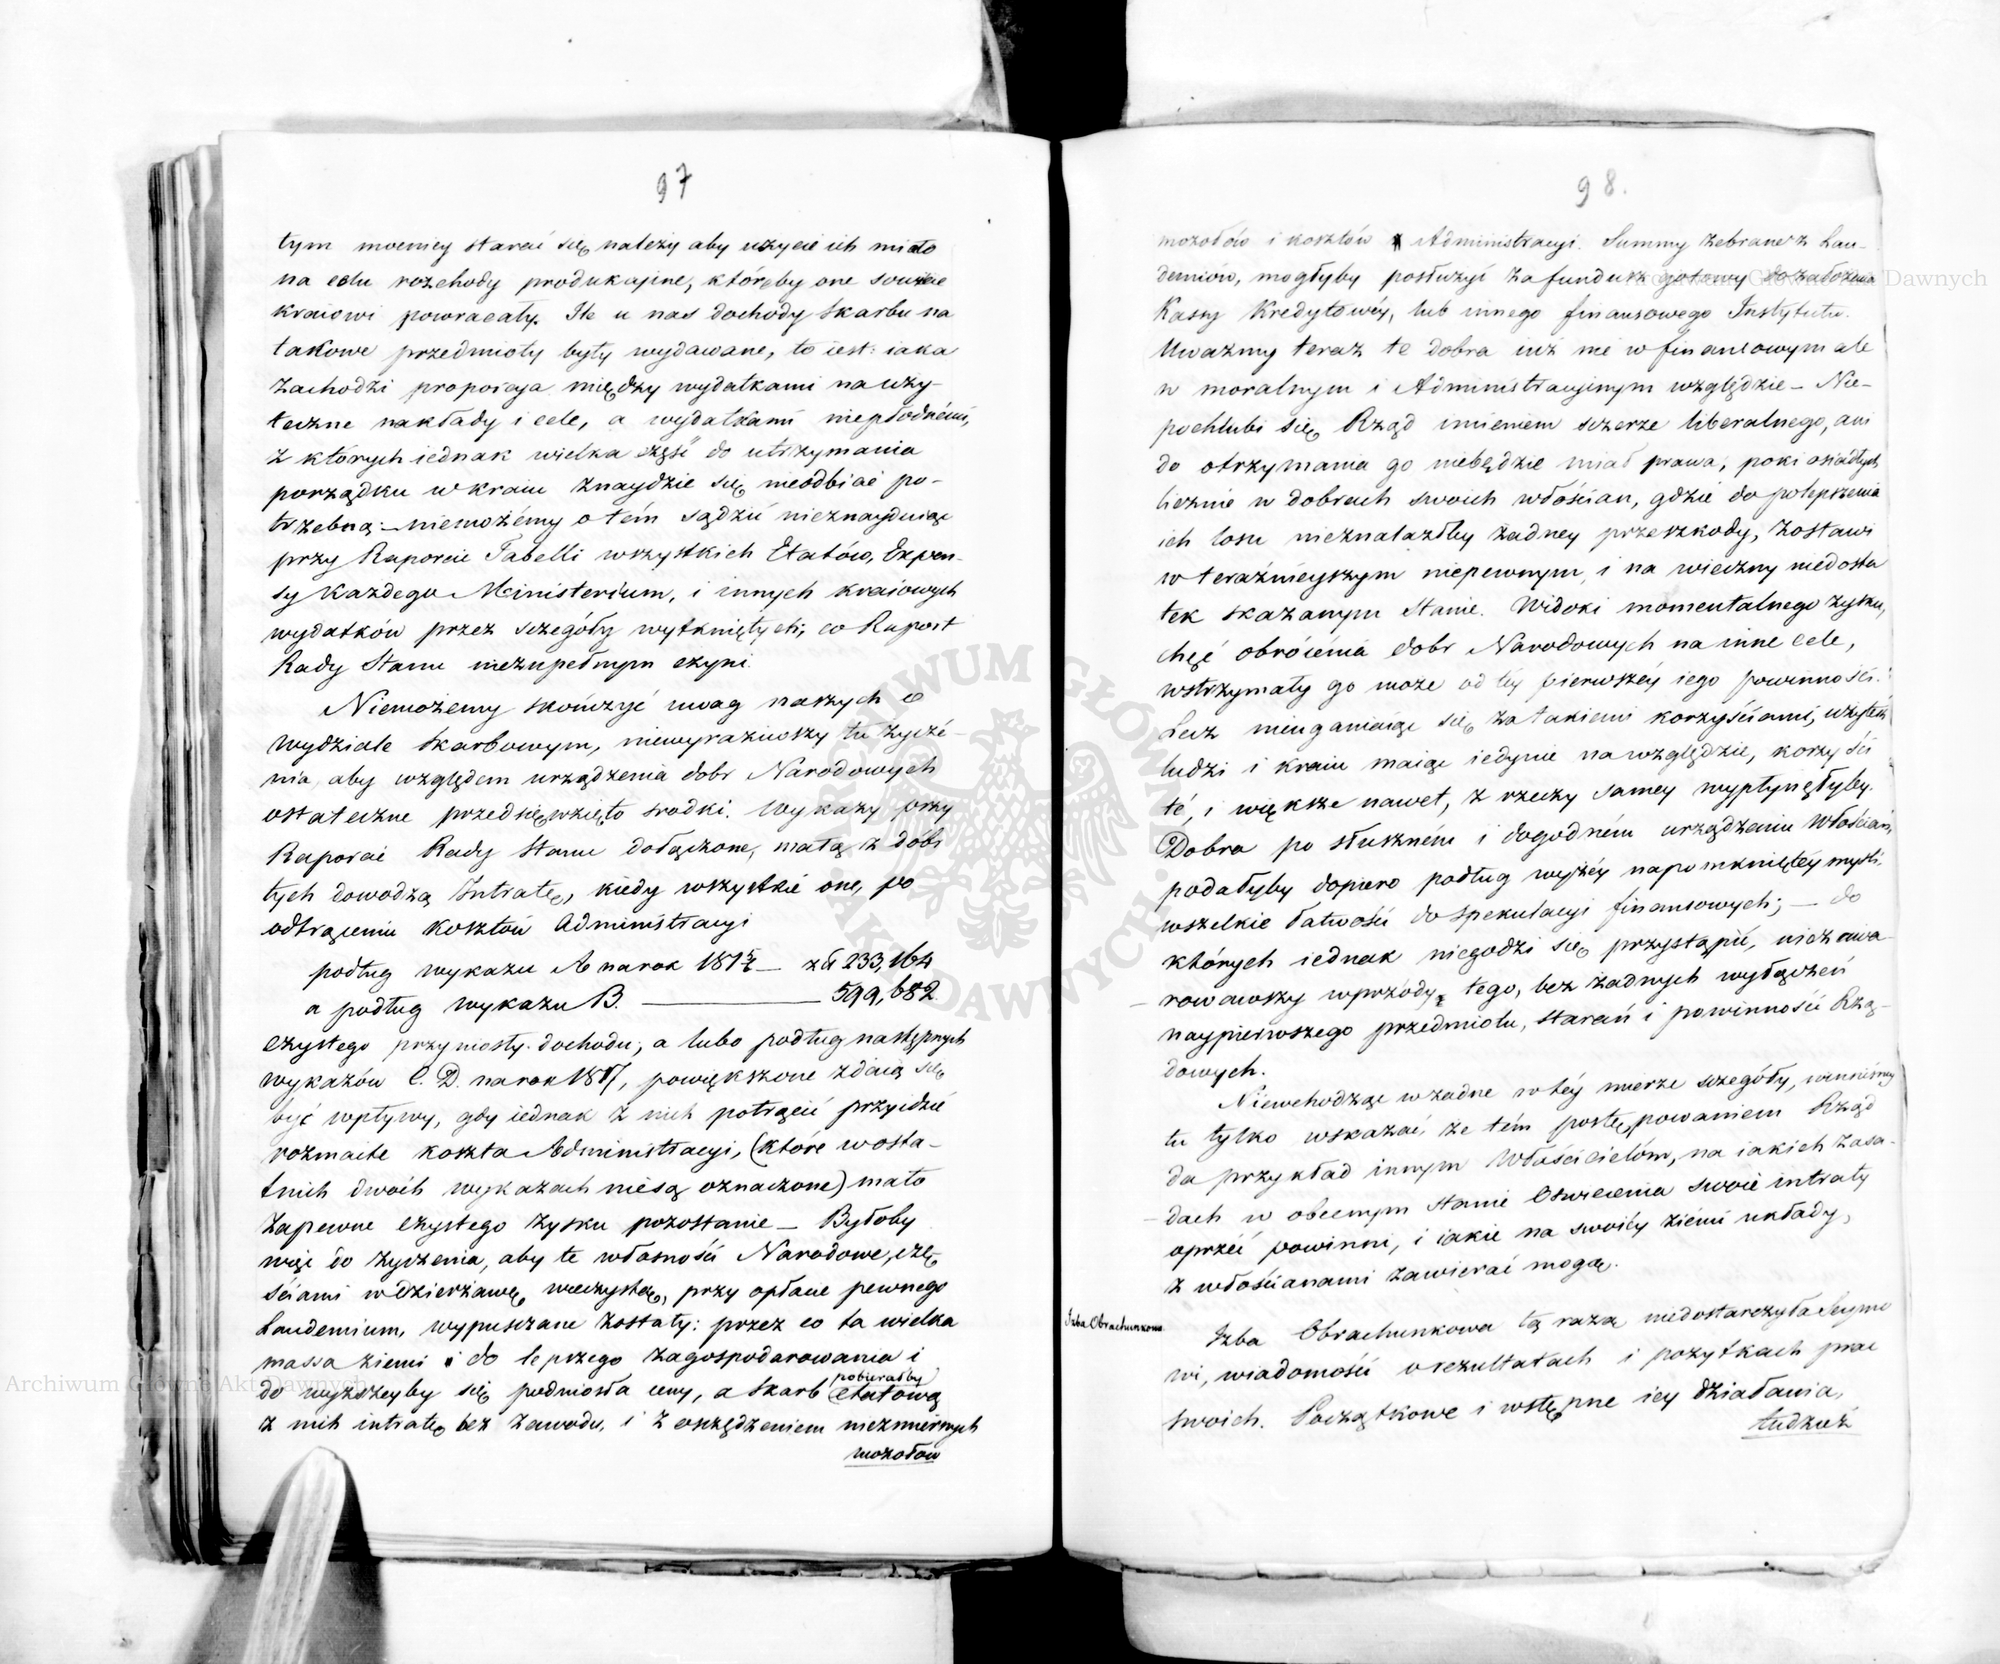 97
tym mocniey starać się należy aby użycie ich miało
na celu rozchody produkcyine, któreby one sowicie
kraiowi powracały. Ile u nas dochody skarbu na
takowe przedmioty były wydawane, to iest: iaka
zachodzi proporcya między wydatkami na uży-
teczne nakłady i cele, a wydatkami niepłodnémi,
z których iednak wielka część do utrzymania
porządku w kraiu znaydzie się nieodbicie po-
trzebną: – niemożémy o tém sądzić nieznayduiąc
przy Raporcie Tabelli wszystkich Etatów, Expen-
sy każdego Ministerium, i innych kraiowych
wydatków przez szczegóły wytkniętych; co Raport
Rady Stanu niezupełnym czyni.
Niemożemy skończyć uwag naszych o
wydziale skarbowym, niewyraziwszy tu życzé-
nia, aby względem urządzenia dobr Narodowych
ostateczne przedsięwzięto srodki. Wykazy przy
Raporcie Rady Stanu dołączone, małą z dóbr
tych dowodzą Intratę, kiedy wszystkie one, po
odtrąceniu kosztów Administracyi
podług wykazu A na rok 181 5/6 – zł 233,164
a podług wykazu B. – 599,682
czystego przyniosły dochodu; a lubo podług następnych
wykazów C. D. na rok 1817, powiększone zdaią się
być wpływy, gdy iednak z nich potrącić przyidzie
rozmaite koszta Administracyi, (które w osta-
tnich dwóch wykazach niesą oznaczone) mało
zapewne czystego zysku pozostanie – Byłoby
więc do życzenia, aby te własności Narodowe, czę-
ściami w dzierżawę wieczystą, przy opłacie pewnego
Laudemium, wypuszczane zostały: przez co ta wielka
massa ziemi i do lepszego zagospodarowania i
do wyższeyby się podniosła ceny, a skarb pobierałby etatową
z nich intratę bez zawodu, i z oszczędzeniem niezmiernych
mozołów
98.
mozołów i kosztów Administracyi. Summy zebrane z Lau-
demiów, mogłyby posłużyć za fundusz gotowy do założenia
Kassy Kredytowéy, lub innego finansowego Instytutu.
Uważmy teraz te dobra iuż nie w finansowym ale
w moralnym i Administracyinym względzie – Nie-
pochlubi się Rząd imieniem szczerze liberalnego, ani
do otrzymania go niebędzie miał prawa, poki osiadłych
licznie w dobrach swoich włościan, gdzie do polepszenia
ich losu nieznalazłby żadney przeszkody, zostawi
w teraźnieyszym niepewnym, i na wieczny niedosta
tek skazanym stanie. Widoki momentalnego zysku,
chęć obrócenia dobr Narodowych na inne cele,
wstrzymały go może od téy pierwszéy iego powinności.
Lecz nieuganiaiąc się za takiemi korzyściami, użytek
ludzi i kraiu maiąc iedynie na względzie, korzyści
té, i większe nawet, z rzeczy samey wypłynęłyby.
Dobra po słuszném i dogodném urządzeniu Włościan,
podałyby dopiero podług wyżéy napomkniętéy myśli,
wszelkie łatwości do spekulacyi finansowych; – do
których iednak niegodzi się przystąpić, niezawa-
rowawszy wprzódy tego, bez żadnych wyłączeń
naypierwszego przedmiotu, starań i powinności Rzą-
dowych.
Niewchodząc w żadne w téy mierze szczegóły, winniśmy
tu tylko wskazać, że tém postępowaniem Rząd
da przykład innym Właścicielóm, na iakich zasa-
dach w obecnym stanie Oświecenia swoie intraty
oprzéć powinni, i iakie na swoiéy ziemi układy,
z włościanami zawierać mogą.
Izba Obrachunkowa
Izba Obrachunkowa tą razą niedostarczyła Seymo
wi, wiadomości o rezultatach i pożytkach prac
swoich. Początkowe i wstępne iey działania,
tudzież
Archiwum Główne Akt Dawnych
Archiwum Główne Akt Dawnych
ARCHIWUM GŁÓWNE AKT DAWNYCH